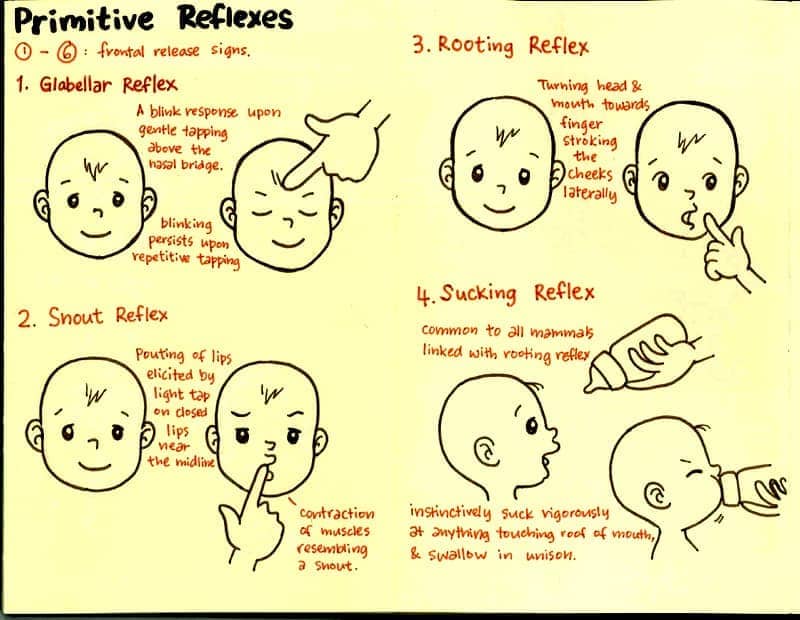 Primitive Reflexes
① - ⑥ : frontal release signs.
1. Glabellar Reflex
A blink response upon
gentle tapping
above the
nasal bridge.
blinking
persists upon
repetitive tapping
2. Snout Reflex
Pouting of lips
elicited by
light tap
on closed
lips
near
the midline
contraction
of muscles
resembling
a snout.
3. Rooting Reflex
Turning head &
mouth towards
finger
stroking
the
cheeks
laterally
4. Sucking Reflex
common to all mammals
linked with rooting reflex
instinctively suck rigorously
at anything touching roof of mouth,
& swallow in unison.